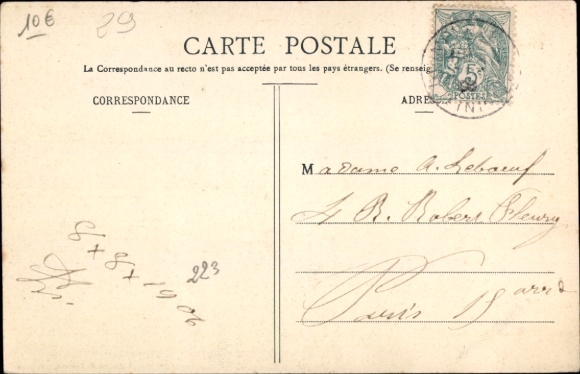 10€ 29
CARTE POSTALE
La Correspondance au recto n'est pas acceptée par tous les pays étrangers. (Se renseig
CORRESPONDANCE
ADRESSE
5
POSTES
Madame A. Leboeuf
4 R. Robert Fleury
Paris 15 arrd
223